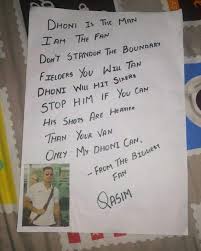 DHONI IS THE MAN
I AM THE FAN
DON'T STANDON THE BOUNDARY
FIELDERS YOU WILL TAN
DHONI WILL HIT SIXERS
STOP HIM IF YOU CAN
HIS SHOTS ARE HEAVIER
THAN YOUR VAN
ONLY MY DHONI CAN,
-FROM THE BIGGEST
FAN
QASIM